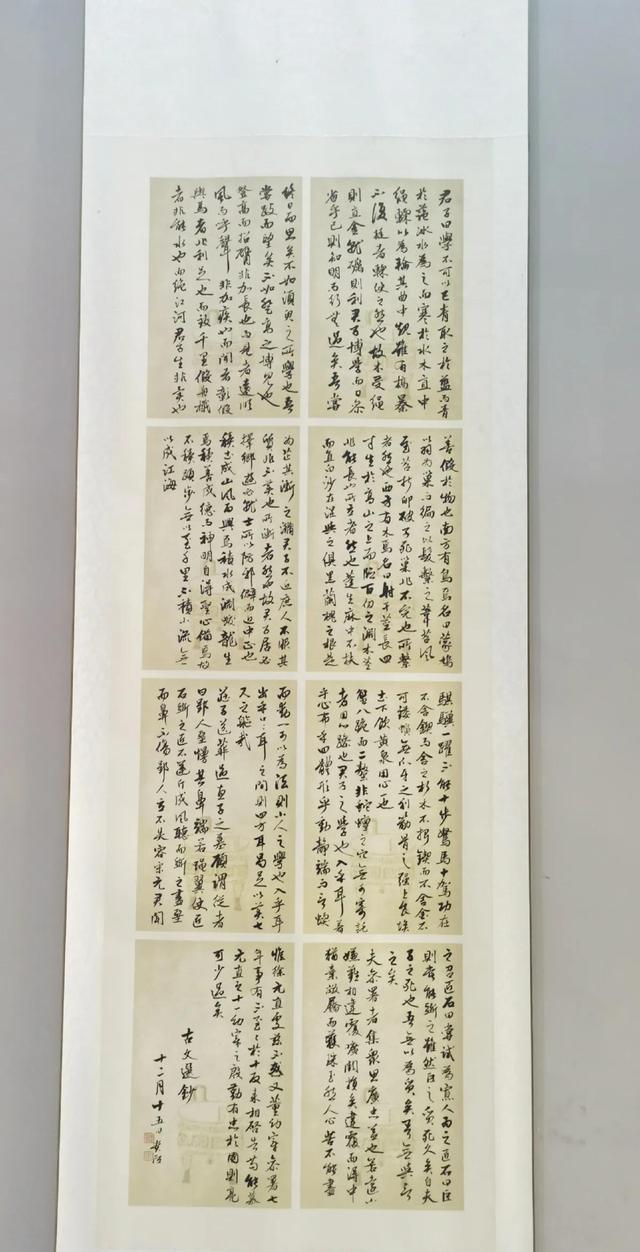 君子曰學不可以已青取之於藍而青
於藍冰水為之而寒於水木直中
繩輮以為輪其曲中規雖有槁暴
不復挺者輮使之然也故木受繩
則直金就礪則利君子博學而日參
省乎己則知明而行無過矣吾嘗
終日而思矣不如須臾之所學也吾
嘗跂而望矣不如登高之博見也
登高而招臂非加長也而見者遠順
風而呼聲非加疾也而聞者彰假
輿馬者非利足也而致千里假舟檝
者非能水也而絕江河君子生非異也
善假於物也南方有鳥焉名曰蒙鳩
以羽為巢而編之以髮繫之葦苕風
至苕折卵破子死巢非不完也所繫
者然也西方有木焉名曰射干莖長四
寸生於高山之上而臨百仞之淵木莖
非能長也所立者然也蓬生麻中不扶
而直白沙在涅與之俱黑蘭槐之根是
為芷其漸之滫君子不近庶人不服其
質非不美也所漸者然也故君子居必
擇鄉遊必就士所以防邪僻而近中正也
積土成山風雨興焉積水成淵蛟龍生
焉積善成德而神明自得聖心備焉故
不積蹞步無以至千里不積小流無
以成江海
騏驥一躍不能十步駑馬十駕功在
不舍鍥而舍之朽木不折鍥而不舍金石
可鏤螾無爪牙之利筋骨之強上食埃
土下飲黃泉用心一也
蟹八跪而二螯非蛇蟺之穴無可寄託
者用心躁也君子之學也入乎耳著
乎心布乎四體形乎動靜端而言蝡
而動一可以為法則小人之學也入乎耳
出乎口口耳之間則四寸耳曷足以美七
尺之軀哉
莊子送葬過惠子之墓顧謂從者
曰郢人堊慢其鼻端若蠅翼使匠
石斲之匠石運斤成風聽而斲之盡堊
而鼻不傷郢人立不失容宋元君聞
之召匠石曰嘗試為寡人為之匠石曰臣
則嘗能斲之雖然臣之質死久矣自夫
子之死也吾無以為質矣吾無與言
之矣
夫參署者集衆思廣忠益也若遠小
嫌難相違覆曠闕損矣違覆而得中
猶棄敝蹻而獲珠玉然人心苦不能盡
惟徐元直處茲不惑又董幼宰參署七
年事有不至至於十反來相啓告苟能慕
元直之十一幼宰之殷勤有忠於國則亮
可少過矣
古文選鈔
十二月十五日